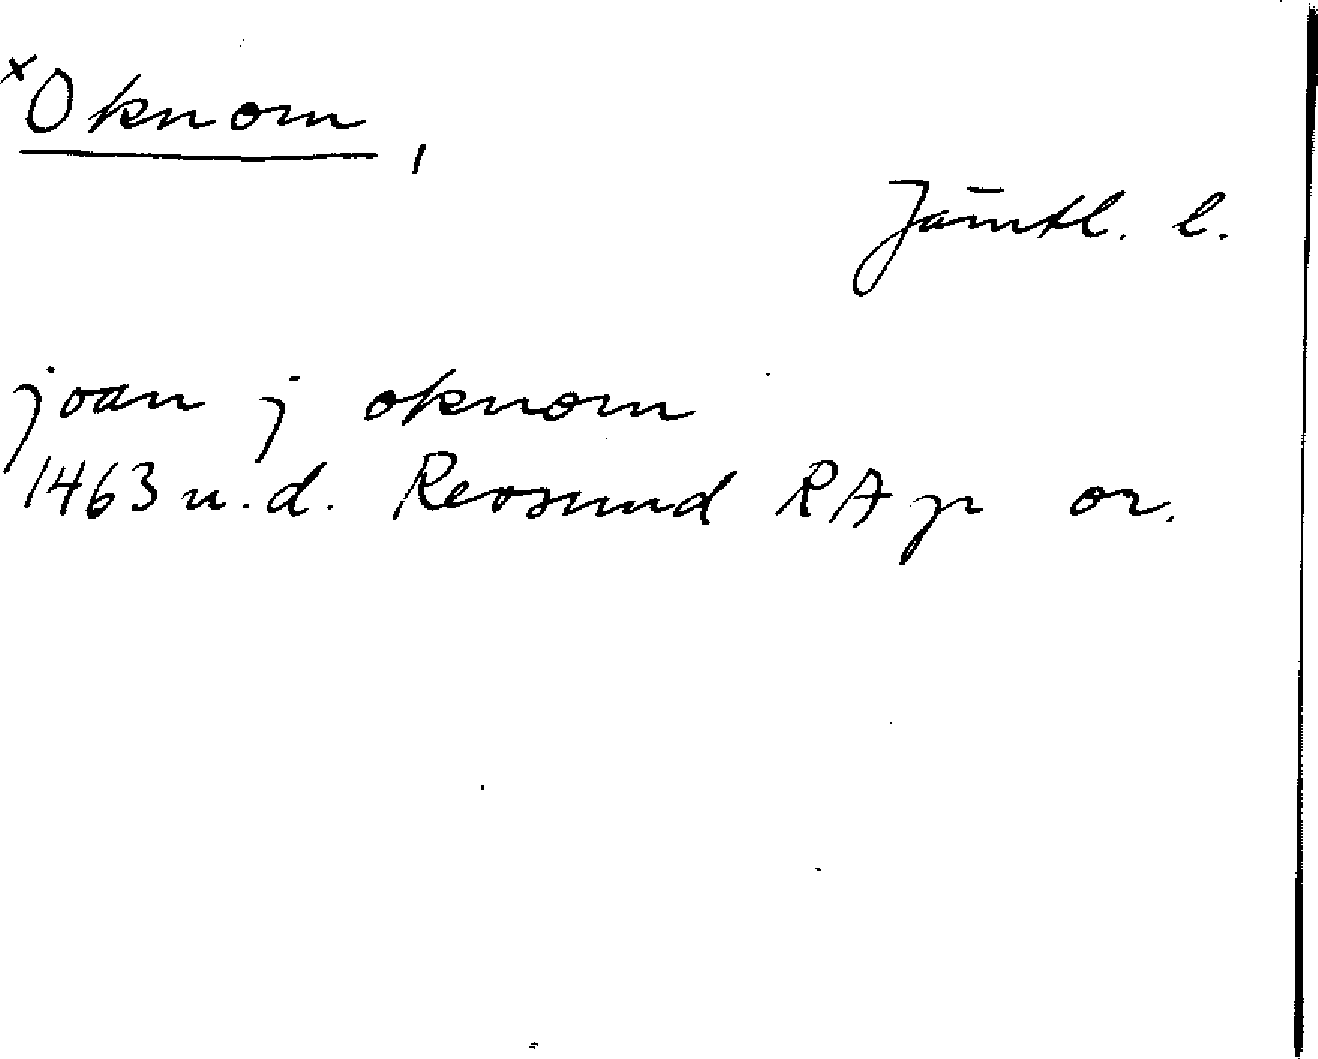 xOknom,
Jämtl. l.
joan j oknom
1463 u.d. Revsund RAp or.